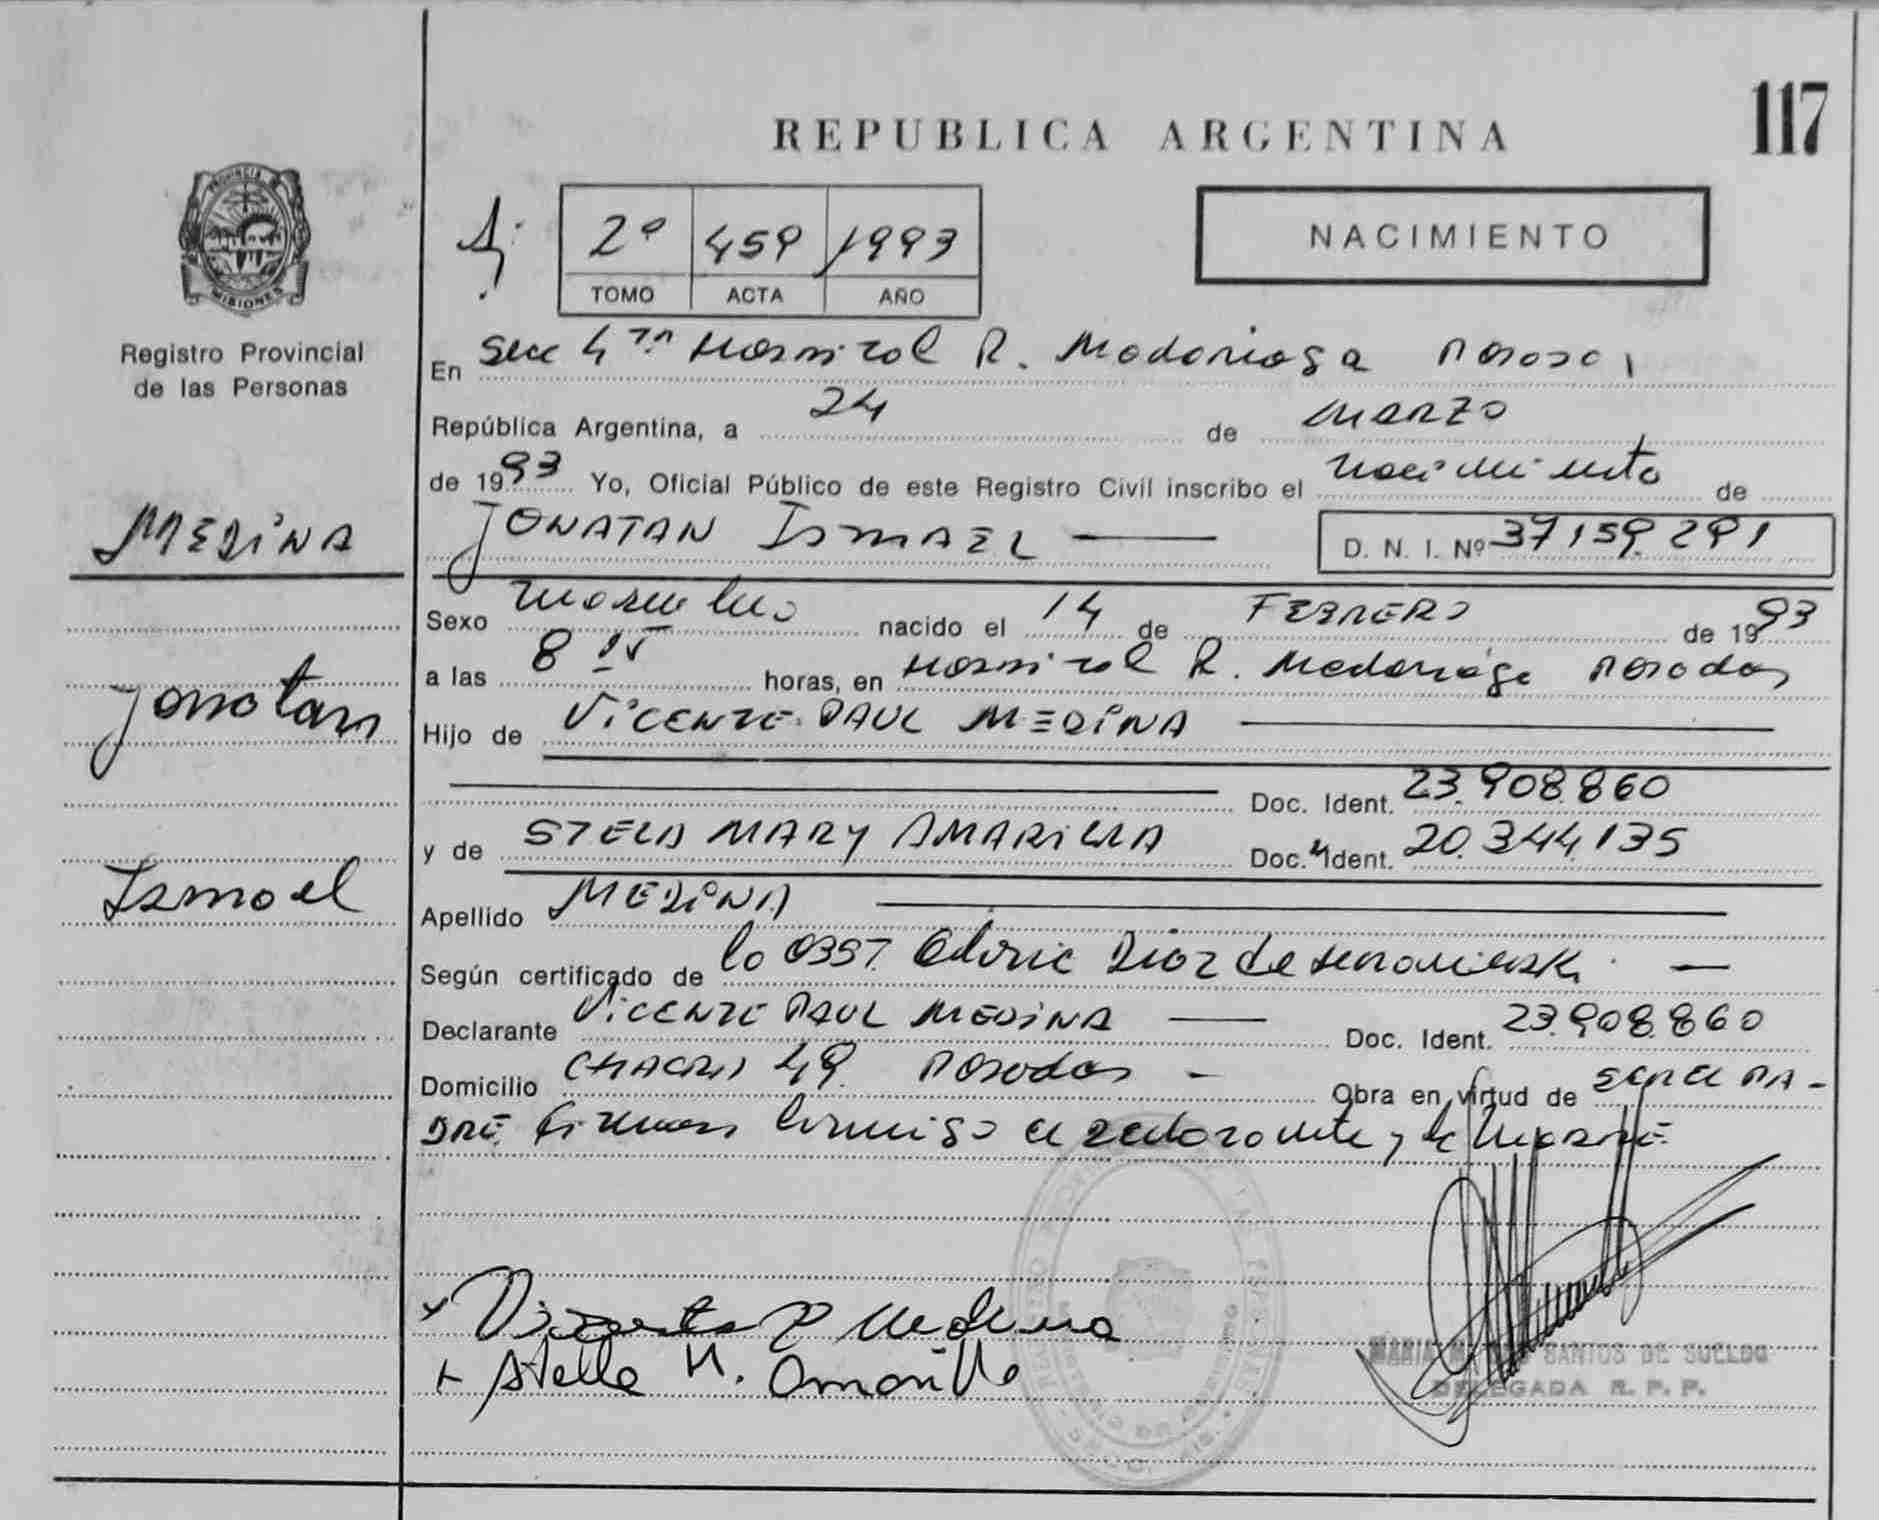 117
REPUBLICA ARGENTINA
PROVINCIA DE
MISIONES
Registro Provincial
de las Personas
2º 459 1993
TOMO ACTA AÑO
NACIMIENTO
En Secc 4ta Hospital R. Madariaga Posadas
República Argentina, a 24 de marzo
de 1993 Yo, Oficial Público de este Registro Civil inscribo el nacimiento de
MEDINA
JONATAN ISMAEL
D. N. I. Nº 37.159.291
Sexo masculino nacido el 14 de FEBRERO de 1993
a las 8 horas, en Hospital R. Madariaga Posadas
Jonatan
Hijo de VICENTE PAUL MEDINA
Doc. Ident. 23.908.860
y de STELA MARY AMARILLA Doc. Ident. 20.344.135
Ismael
Apellido MEDINA
Según certificado de la Obst. Diaz de
Declarante VICENTE PAUL MEDINA Doc. Ident. 23.908.860
Domicilio CHACRA 49 Posadas - Obra en virtud de SER EL PA-
DRE firman conmigo el declarante y la MADRE
x Vicente P Medina
x Stella M. Amarilla
MARIA SANTOS DE
DELEGADA R. P. P.